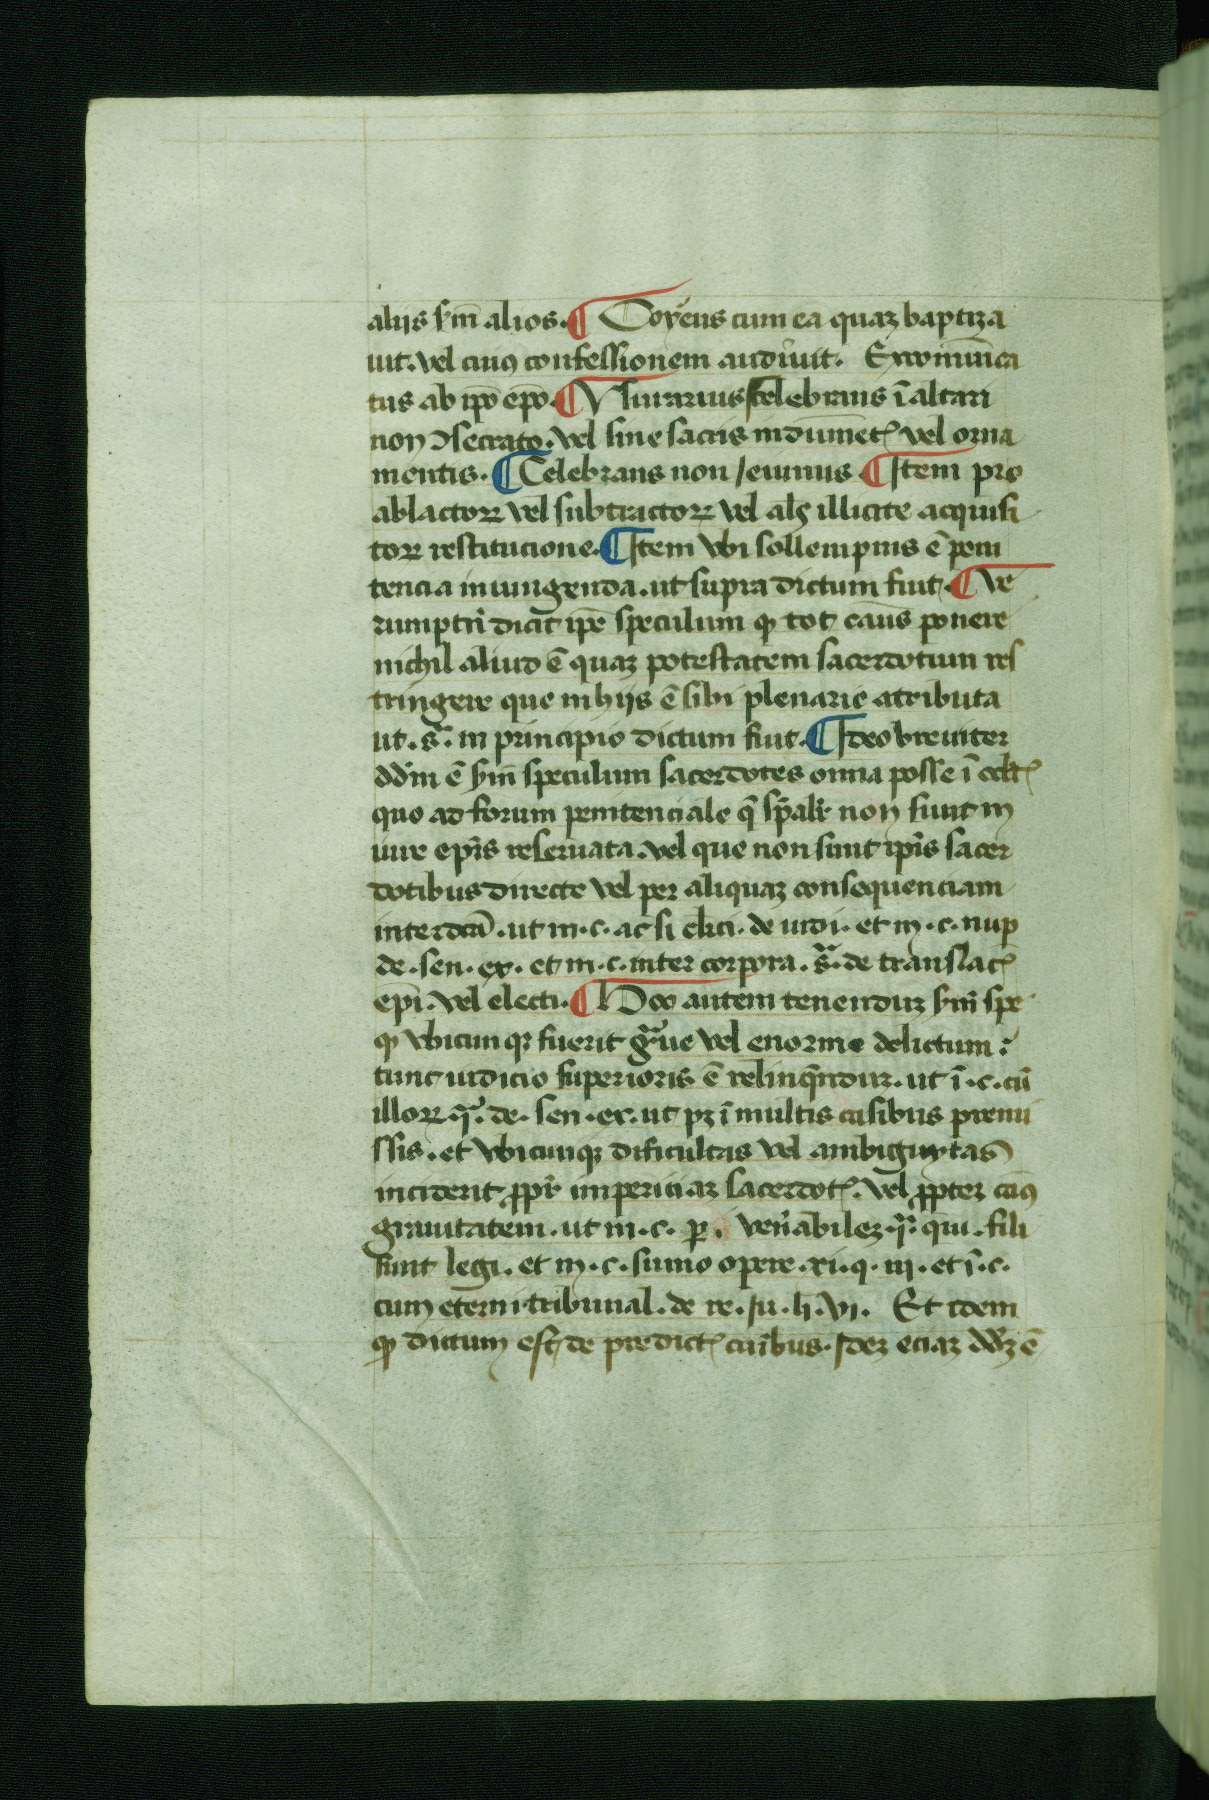 aliis s'm alios. ¶ Coyens cum ea quaz baptiza
uit. vel cuius confessionem audiuit. Excomunica
tus ab ipo epo. ¶ Vsurarius celebrans ī altari
non ↄsecrato. vel sine sacris indumet vel orna
mentis. ¶ Celebrans non ieiunus ¶ Item pro
ablactoꝝ vel subtractoꝝ vel alꝫ illicite acquisi
toꝝ restitucione. ¶ Item vbi sollempnis ē peni
tencia iniungenda. ut supra dictum fuit. ¶ Ve
rumptn̄ dicit ipē speculum ꝙ tot casus ponere
nichil aliud ē quaz potestatem sacerdotum res
tringere que in hiis ē sibi plenarie atributa
ut. s̄. in principio dictum fuit. ¶ Ideo breuiter
dd'm ē s'm speculum sacerdotes omnia posse ī
quo ad forum penitenciale q̄ sp̄alr non sunt in
iure epis reseruata. vel que non sunt ipis sacer
dotibus directe vel per aliquaz consequenciam
interdcā. ut in. c. ac si clici. de iudi. et in. c. nup
de. sen. ex. et in. c. inter corpora. s̄. de translac
epi. vel electi. ¶ Hoc autem tenenduz s'm spe
ꝙ vbicunqꝫ fuerit g̃ue vel enorme delictum:
tunc iudicio superioris ē relinq̄nduz. ut ī. c. cū
illoꝝ. de. sen. ex. ut pꝫ ī multis casibus premi
ssis. et vbicunqꝫ dificultas vel ambiguytas
inciderit ꝓpt' impericiaz sacerdot. vel ꝓpter cāus
grauitatem. ut in. c. per. ven'abilez. qui. fili
sunt legi. et in. c. sumo opere. xi. q. iii. et ī. c.
cum eterni tribunal. de re. iu. li. vi. Et idem
ꝙ dictum est de predict casibus. Idez eciaz ddꝫ ē